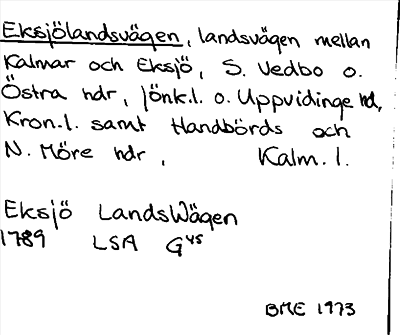 Eksjölandsvägen, landsvägen mellan
Kalmar och Eksjö, S. Vedbo o.
Östra hdr, Jönk.l. o. Uppvidinge hd,
Kron.l. samt Handbörds och
N. Möre hdr, Kalm. l.
Eksjö LandsWägen
1789 LSA G45
BME 1973